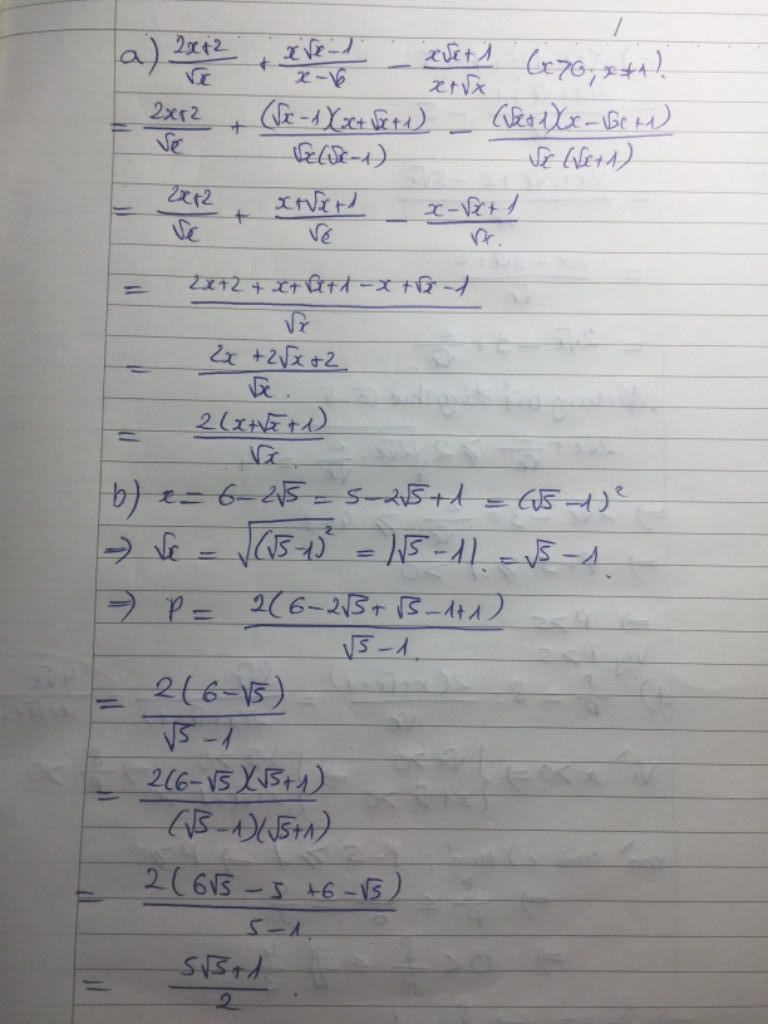 a) (2x+2)/√x + (x√x-1)/(x-√x) - (x√x+1)/(x+√x) (x>0, x≠1).
= (2x+2)/√x + (√x-1)(x+√x+1)/√x(√x-1) - (√x+1)(x-√x+1)/√x(√x+1)
= (2x+2)/√x + (x+√x+1)/√x - (x-√x+1)/√x.
= (2x+2+x+√x+1-x+√x-1)/√x
= (2x+2√x+2)/√x.
= 2(x+√x+1)/√x.
b) x = 6-2√5 = 5-2√5+1 = (√5-1)²
⇒ √x = √(√5-1)² = |√5-1| = √5-1.
⇒ P = 2(6-2√5+√5-1+1)/√5-1.
= 2(6-√5)/√5-1
= 2(6-√5)(√5+1)/(√5-1)(√5+1)
= 2(6√5-5+6-√5)/5-1.
= (5√5+1)/2.